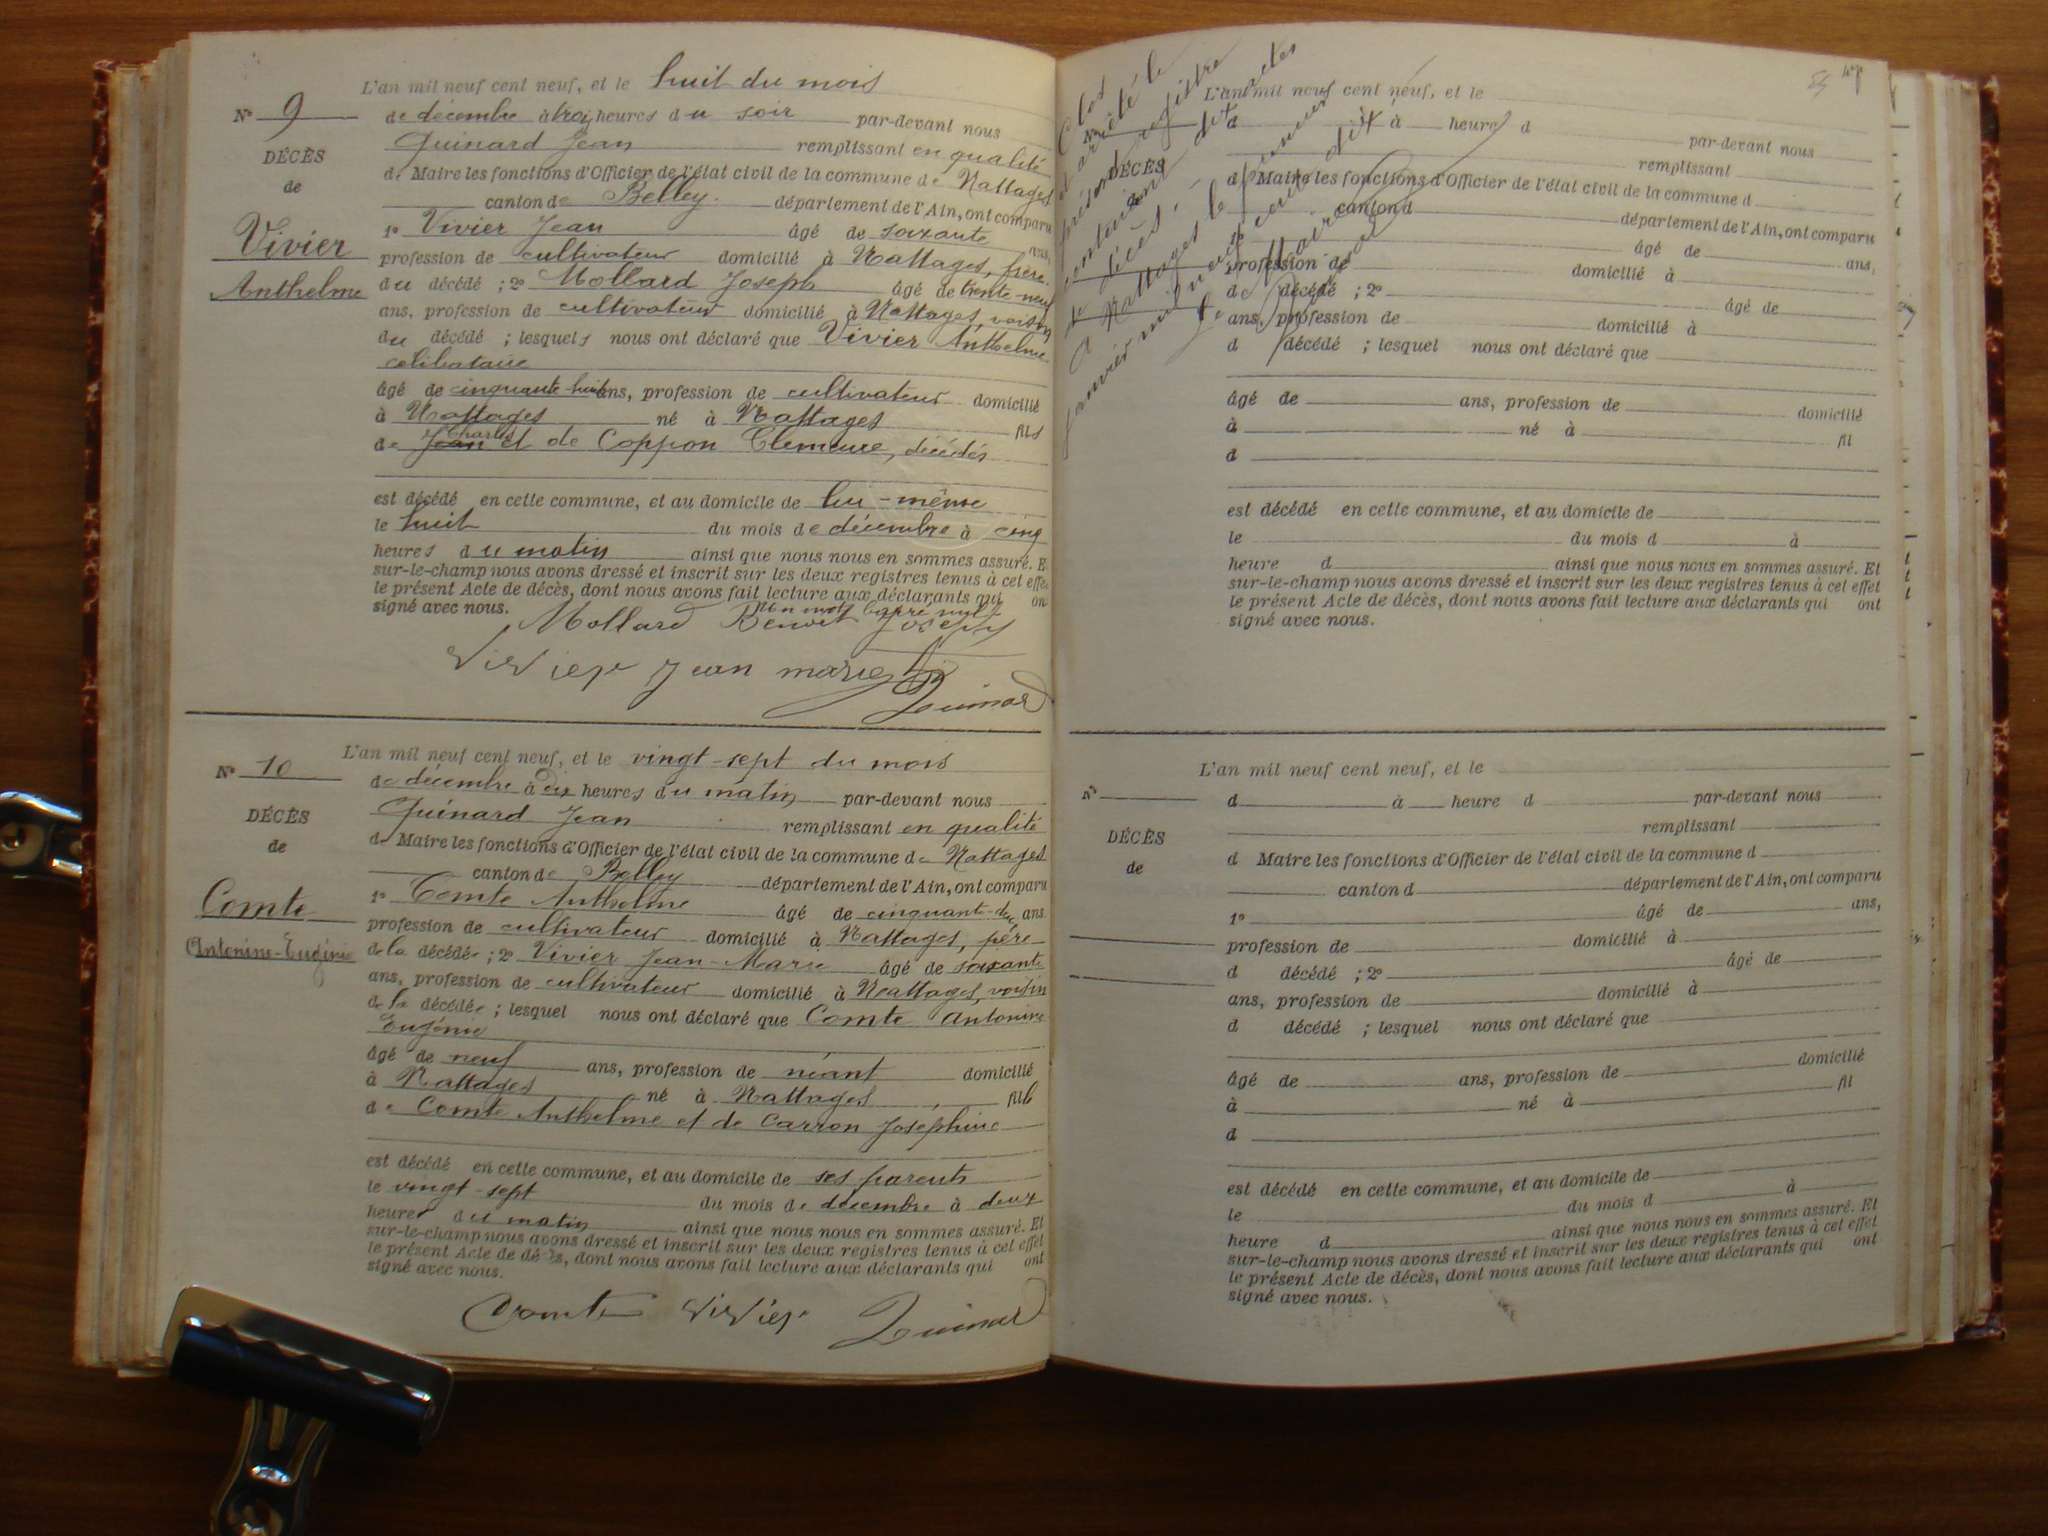 L'an mil neuf cent neuf, et le huit du mois
No 9
de décembre à trois heures du soir par-devant nous
Guinard Jean remplissant en qualité
DÉCÈS
de Maire les fonctions d'Officier de l'état civil de la commune de Nattages
de
canton de Belley. département de l'Ain, ont comparu
1o Vivier Jean âgé de soixante ans,
Vivier
profession de cultivateur domicilié à Nattages, frère
Anthelme
du décédé ; 2o Mollard Joseph âgé de trente-neuf
ans, profession de cultivateur domicilié à Nattages, voisin
du décédé ; lesquels nous ont déclaré que Vivier Anthelme
célibataire
âgé de cinquante-huit ans, profession de cultivateur domicilié
à Nattages né à Nattages fils
de Jean Charles et de Coppon Clémence, décédés
est décédé en cette commune, et au domicile de lui-même
le huit du mois de décembre à cinq
heures du matin ainsi que nous nous en sommes assuré. Et
sur-le-champ nous avons dressé et inscrit sur les deux registres tenus à cet effet
le présent Acte de décès, dont nous avons fait lecture aux déclarants qui ont
signé avec nous. Un mot barré nul
Mollard Benoit Joseph
Vivier Jean marie
Guinard
L'an mil neuf cent neuf, et le vingt-sept du mois
No 10
de décembre à dix heures du matin par-devant nous
Guinard Jean remplissant en qualité
DÉCÈS
de Maire les fonctions d'Officier de l'état civil de la commune de Nattages
de
canton de Belley département de l'Ain, ont comparu
1o Comte Anthelme âgé de cinquante-deux ans
Comte
profession de cultivateur domicilié à Nattages, père
Antonine-Eugénie
de la décédée ; 2o Vivier Jean-Marie âgé de soixante
ans, profession de cultivateur domicilié à Nattages, voisin
de la décédée ; lesquel nous ont déclaré que Comte Antonine
Eugénie
âgé de neuf ans, profession de néant domicilié
à Nattages né à Nattages fille
de Comte Anthelme et de Carron Joséphine
est décédé en cette commune, et au domicile de ses parents
le vingt-sept du mois de décembre à deux
heures du matin ainsi que nous nous en sommes assuré. Et
sur-le-champ nous avons dressé et inscrit sur les deux registres tenus à cet effet
le présent Acte de décès, dont nous avons fait lecture aux déclarants qui ont
signé avec nous.
Comte Vivier Guinard
Clos
et arrêté le
présent registre
contenant dix actes
de décès.
A Nattages le premier
janvier mil neuf cent dix
Le Maire
Guinard
L'an mil neuf cent neuf, et le
No
d à heure d par-devant nous
remplissant
DÉCÈS
d Maire les fonctions d'Officier de l'état civil de la commune d
de
canton d département de l'Ain, ont comparu
1o âgé de ans,
profession de domicilié à
d décédé ; 2o âgé de
ans, profession de domicilié à
d décédé ; lesquel nous ont déclaré que
âgé de ans, profession de domicilié
à né à fil
d
est décédé en cette commune, et au domicile de
le du mois d à
heure d ainsi que nous nous en sommes assuré. Et
sur-le-champ nous avons dressé et inscrit sur les deux registres tenus à cet effet
le présent Acte de décès, dont nous avons fait lecture aux déclarants qui ont
signé avec nous.
L'an mil neuf cent neuf, et le
No
d à heure d par-devant nous
remplissant
DÉCÈS
d Maire les fonctions d'Officier de l'état civil de la commune d
de
canton d département de l'Ain, ont comparu
1o âgé de ans,
profession de domicilié à
d décédé ; 2o âgé de
ans, profession de domicilié à
d décédé ; lesquel nous ont déclaré que
âgé de ans, profession de domicilié
à né à fil
d
est décédé en cette commune, et au domicile de
le du mois d à
heure d ainsi que nous nous en sommes assuré. Et
sur-le-champ nous avons dressé et inscrit sur les deux registres tenus à cet effet
le présent Acte de décès, dont nous avons fait lecture aux déclarants qui ont
signé avec nous.